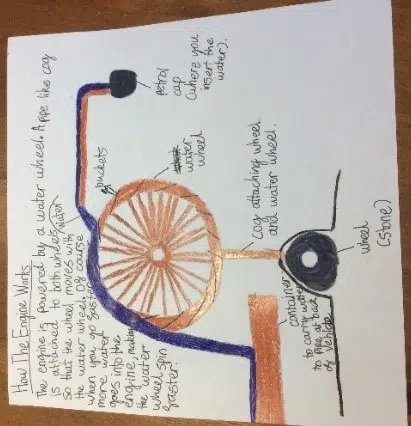 How The Engine Works
The engine is powered by a water wheel. A pipe like cog
is attached to both wheels
so that the wheel moves with
the water wheel. Of course
when you go faster
more water
goes into the
engine, making
the water
wheel spin
faster.
water
buckets
water
wheel
Petrol
cap
(where you
insert the
water).
Cog attaching wheel
and water wheel.
container
to carry water
to pipe at
back
of vehicle
wheel
(stone)